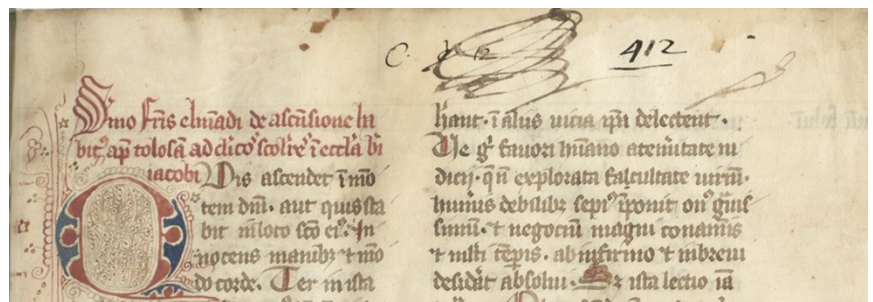 C. 412
Smo fr̄is elinādi de ascēsione ha
bit⁹ ap̄ tolosā ad clīcos scolāres ī ecclā bī
iacobi Quis ascendet ī mō
tem dm̄. aut quis sta
bit in loco scō ei⁹. In
nocens manibꝫ ⁊ mō
do corde. Ter in ista
hant. ī alus uicia ip̄a delectent.
Ve g̊ fauori hūano a temitate iu
dicij. q̄ n̄ explorata facultate uiriū.
humis debilibꝫ sepi⁹ īponit on⁹ g̊uis
simū. ⁊ negociū magni conamis
⁊ mlti tēpis. ab infirmo ⁊ inbreui
desidāt absolui. Sꝫ ista lectio iā